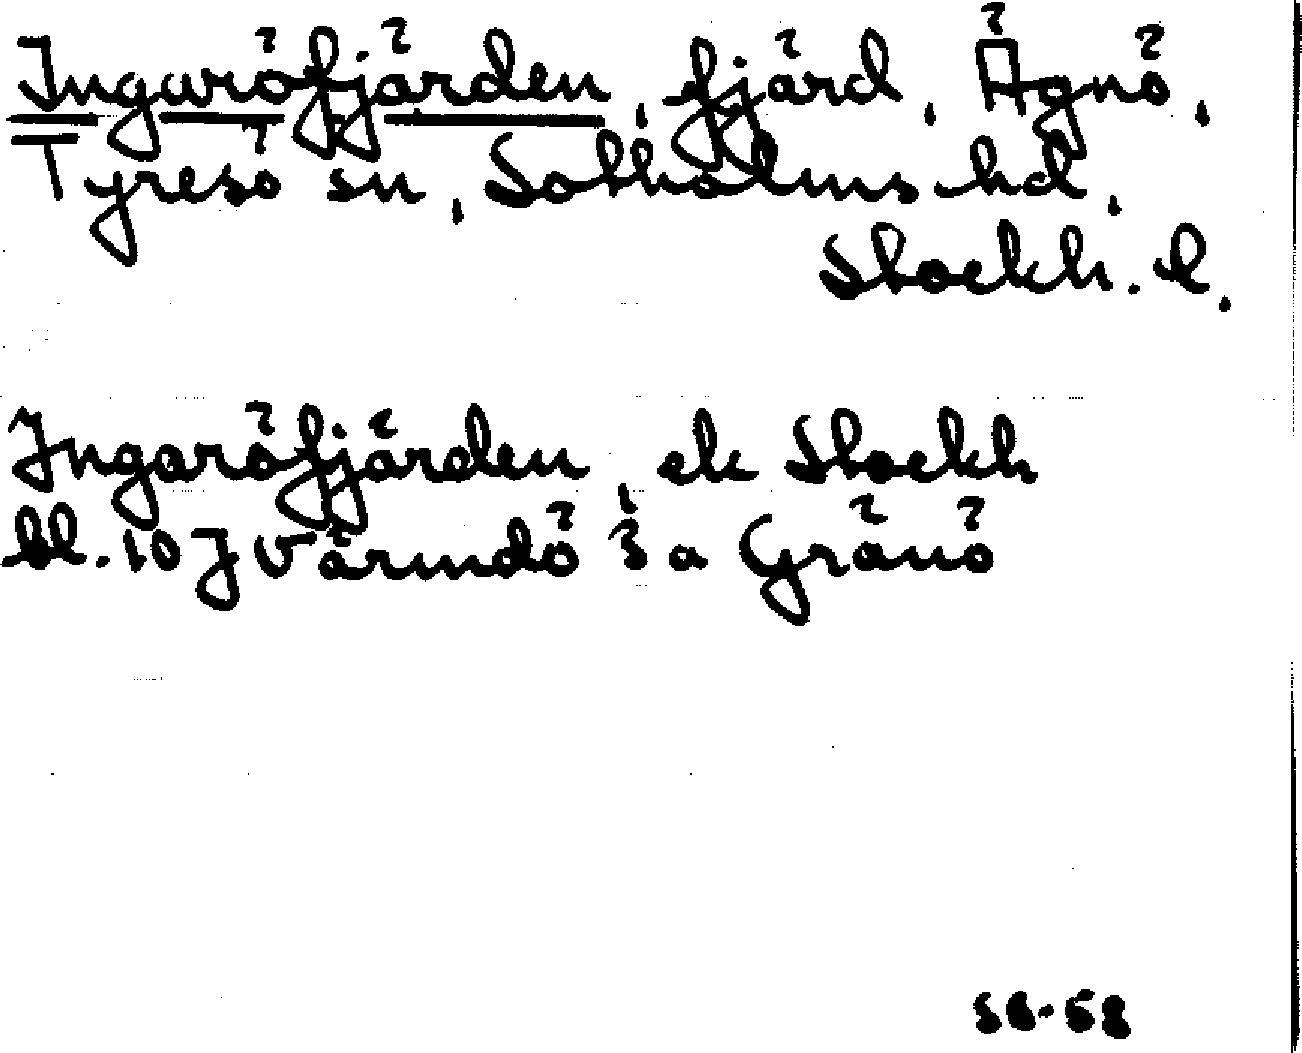 Ingaröfjärden, fjärd, Ägnö,
Tyresö sn, Sotholms hd,
Stockh. l.
Ingaröfjärden, ek Stockh
bl. 10 J Värmdö 3 a Gränö
58-58